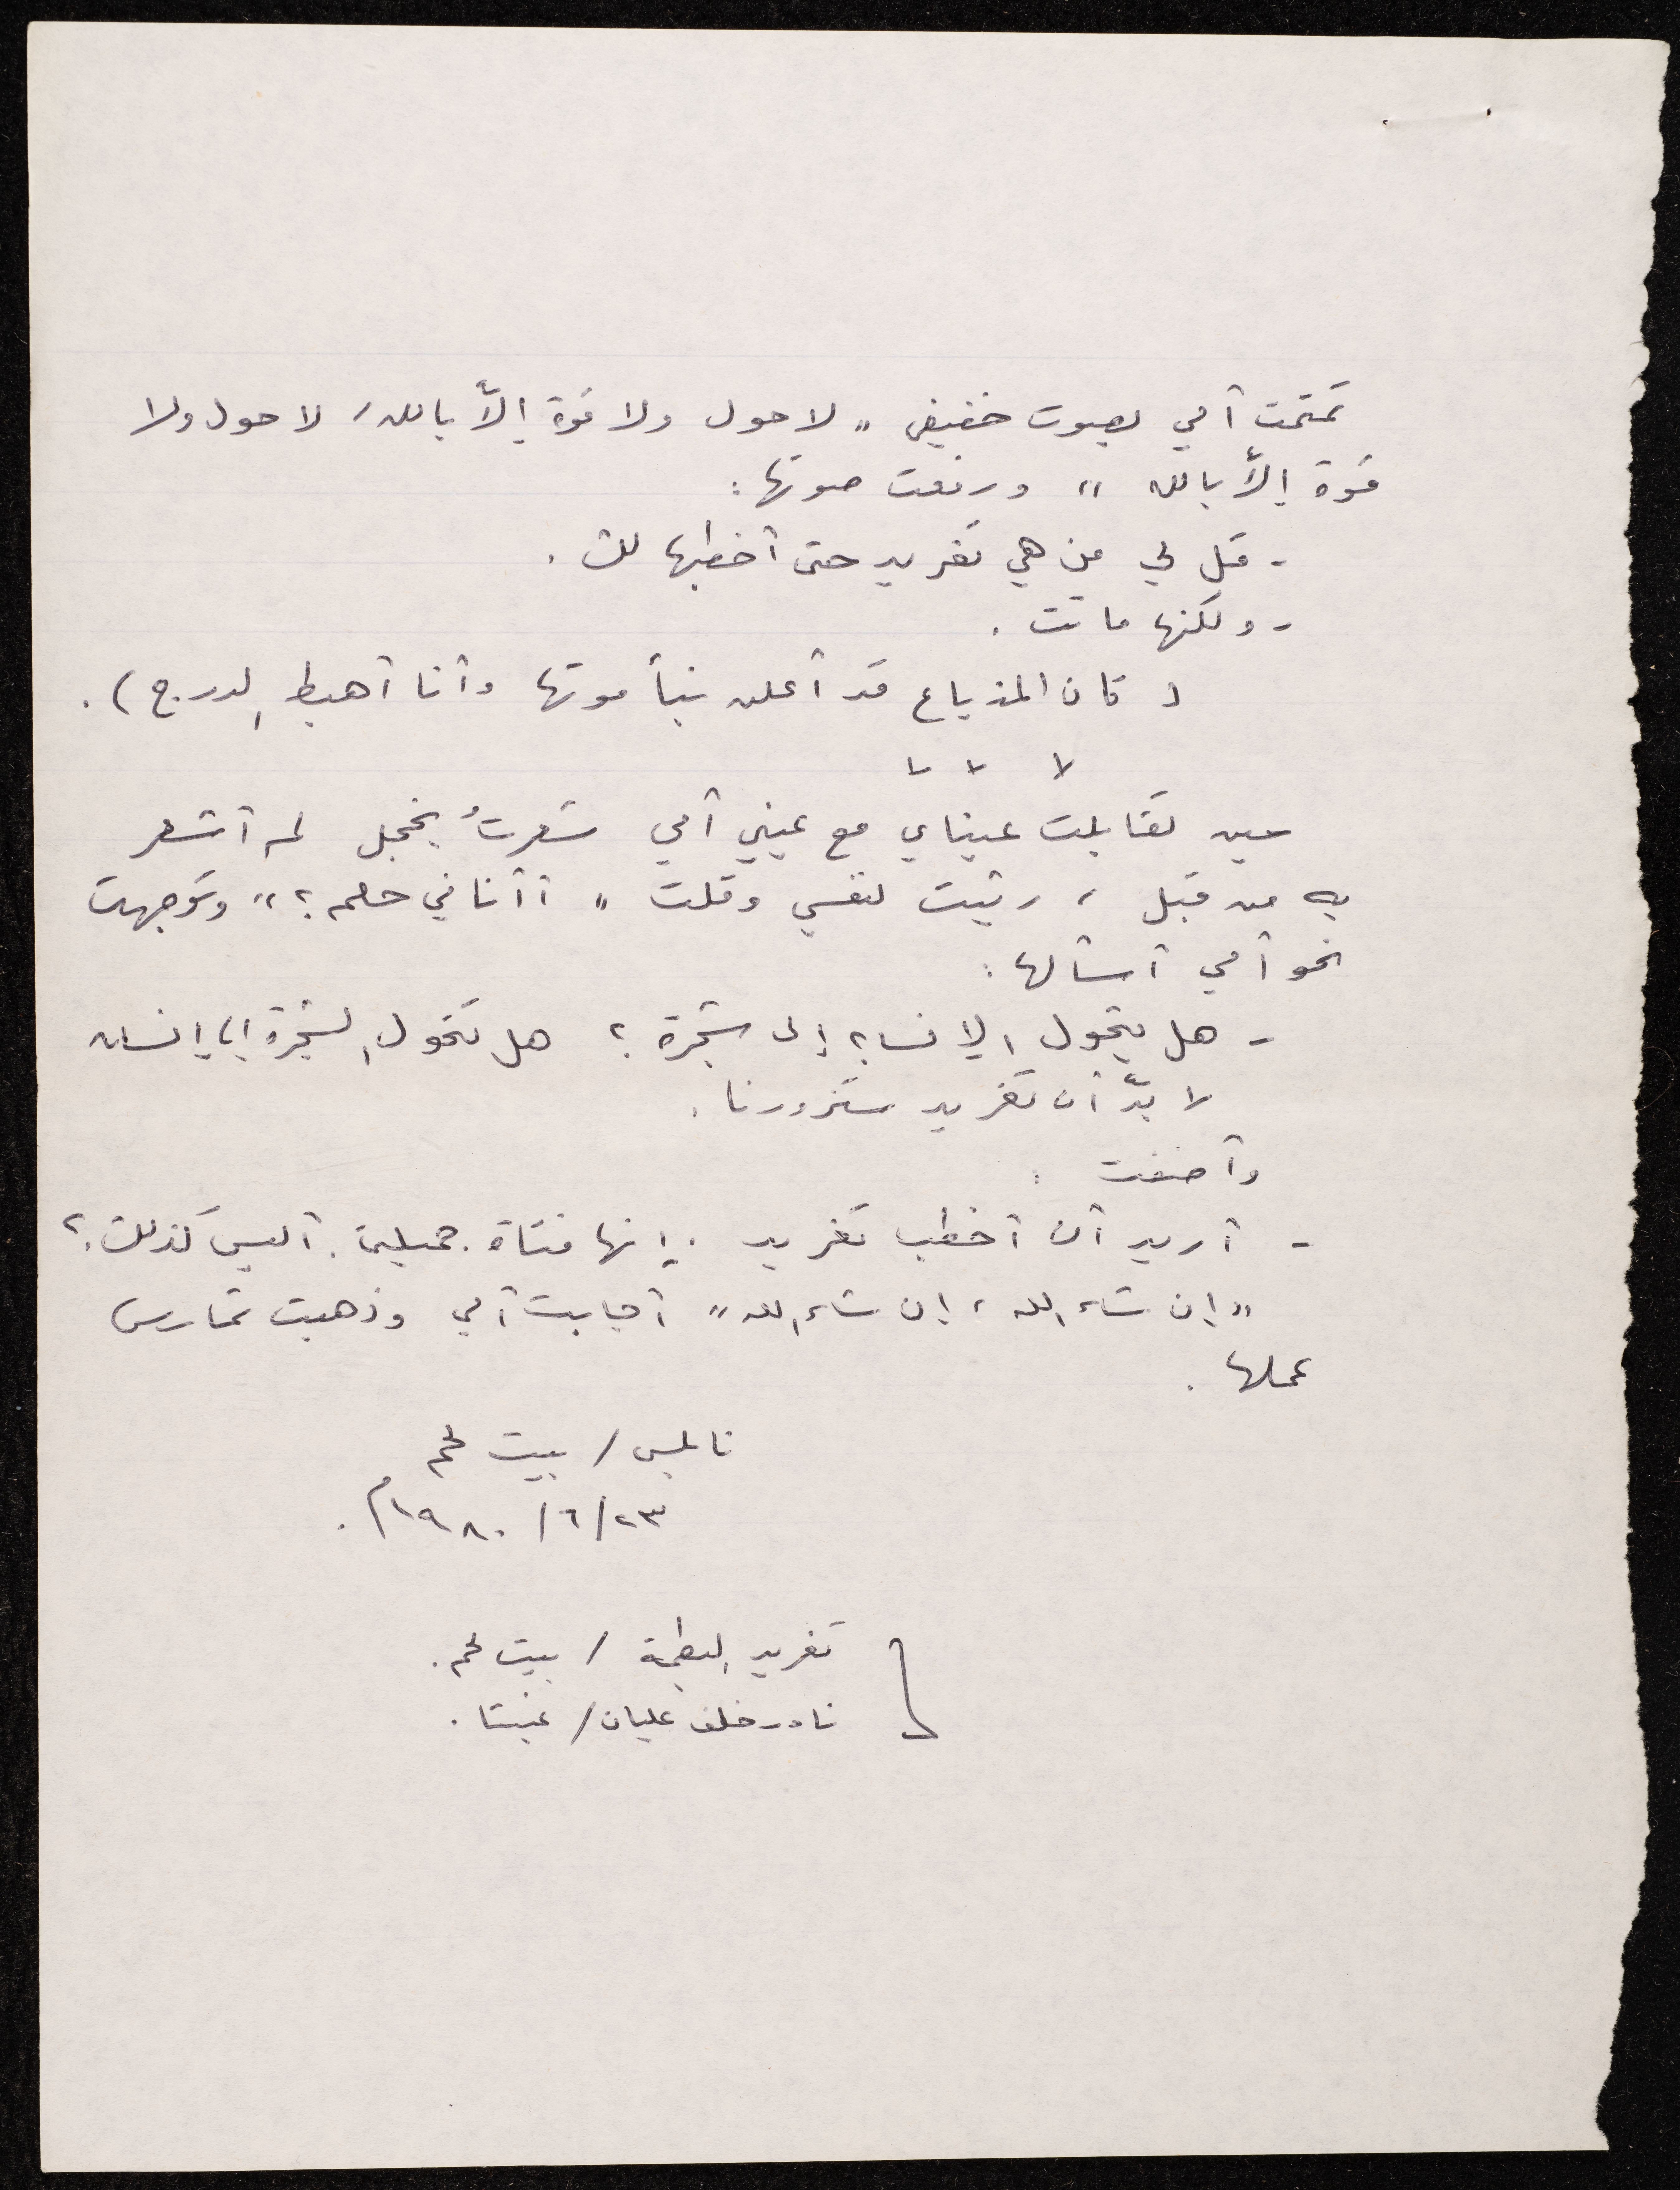 تمتمت أمي بصوت خفيض " لا حول ولا قوة إلاّ بالله، لا حول ولا
قوة إلاّ بالله " ورفعت صوتها :
- قل لي من هي تغريد حتى أخطبها لك .
- ولكنها ماتت .
( كان المذياع قد أعلن نبأ موتها وأنا أهبط الدرج ) .
حين تقابلت عيناي مع عيني أمي شعرتُ بخجل لم أشعر
به من قبل ، رثيت لنفسي وقلت " أأنا في حلم ؟ " وتوجهت
نحو أمي أسألها :
- هل يتحول الإنسان إلى شجرة ؟ هل تتحول الشجرة إلى إنسان
لا بدّ أن تغريد ستزورنا .
وأضفت :
- أريد أن أخطب تغريد . إنها فتاة جميلة . أليس كذلك ؟
" إن شاء الله ، إن شاء الله " أجابت أمي وذهبت تمارس
عملها .
نابلس / بيت لحم
٢٣/٦/١٩٨٠م .
تغريد البطمة / بيت لحم .
نادر خلف عليان / عنبتا .